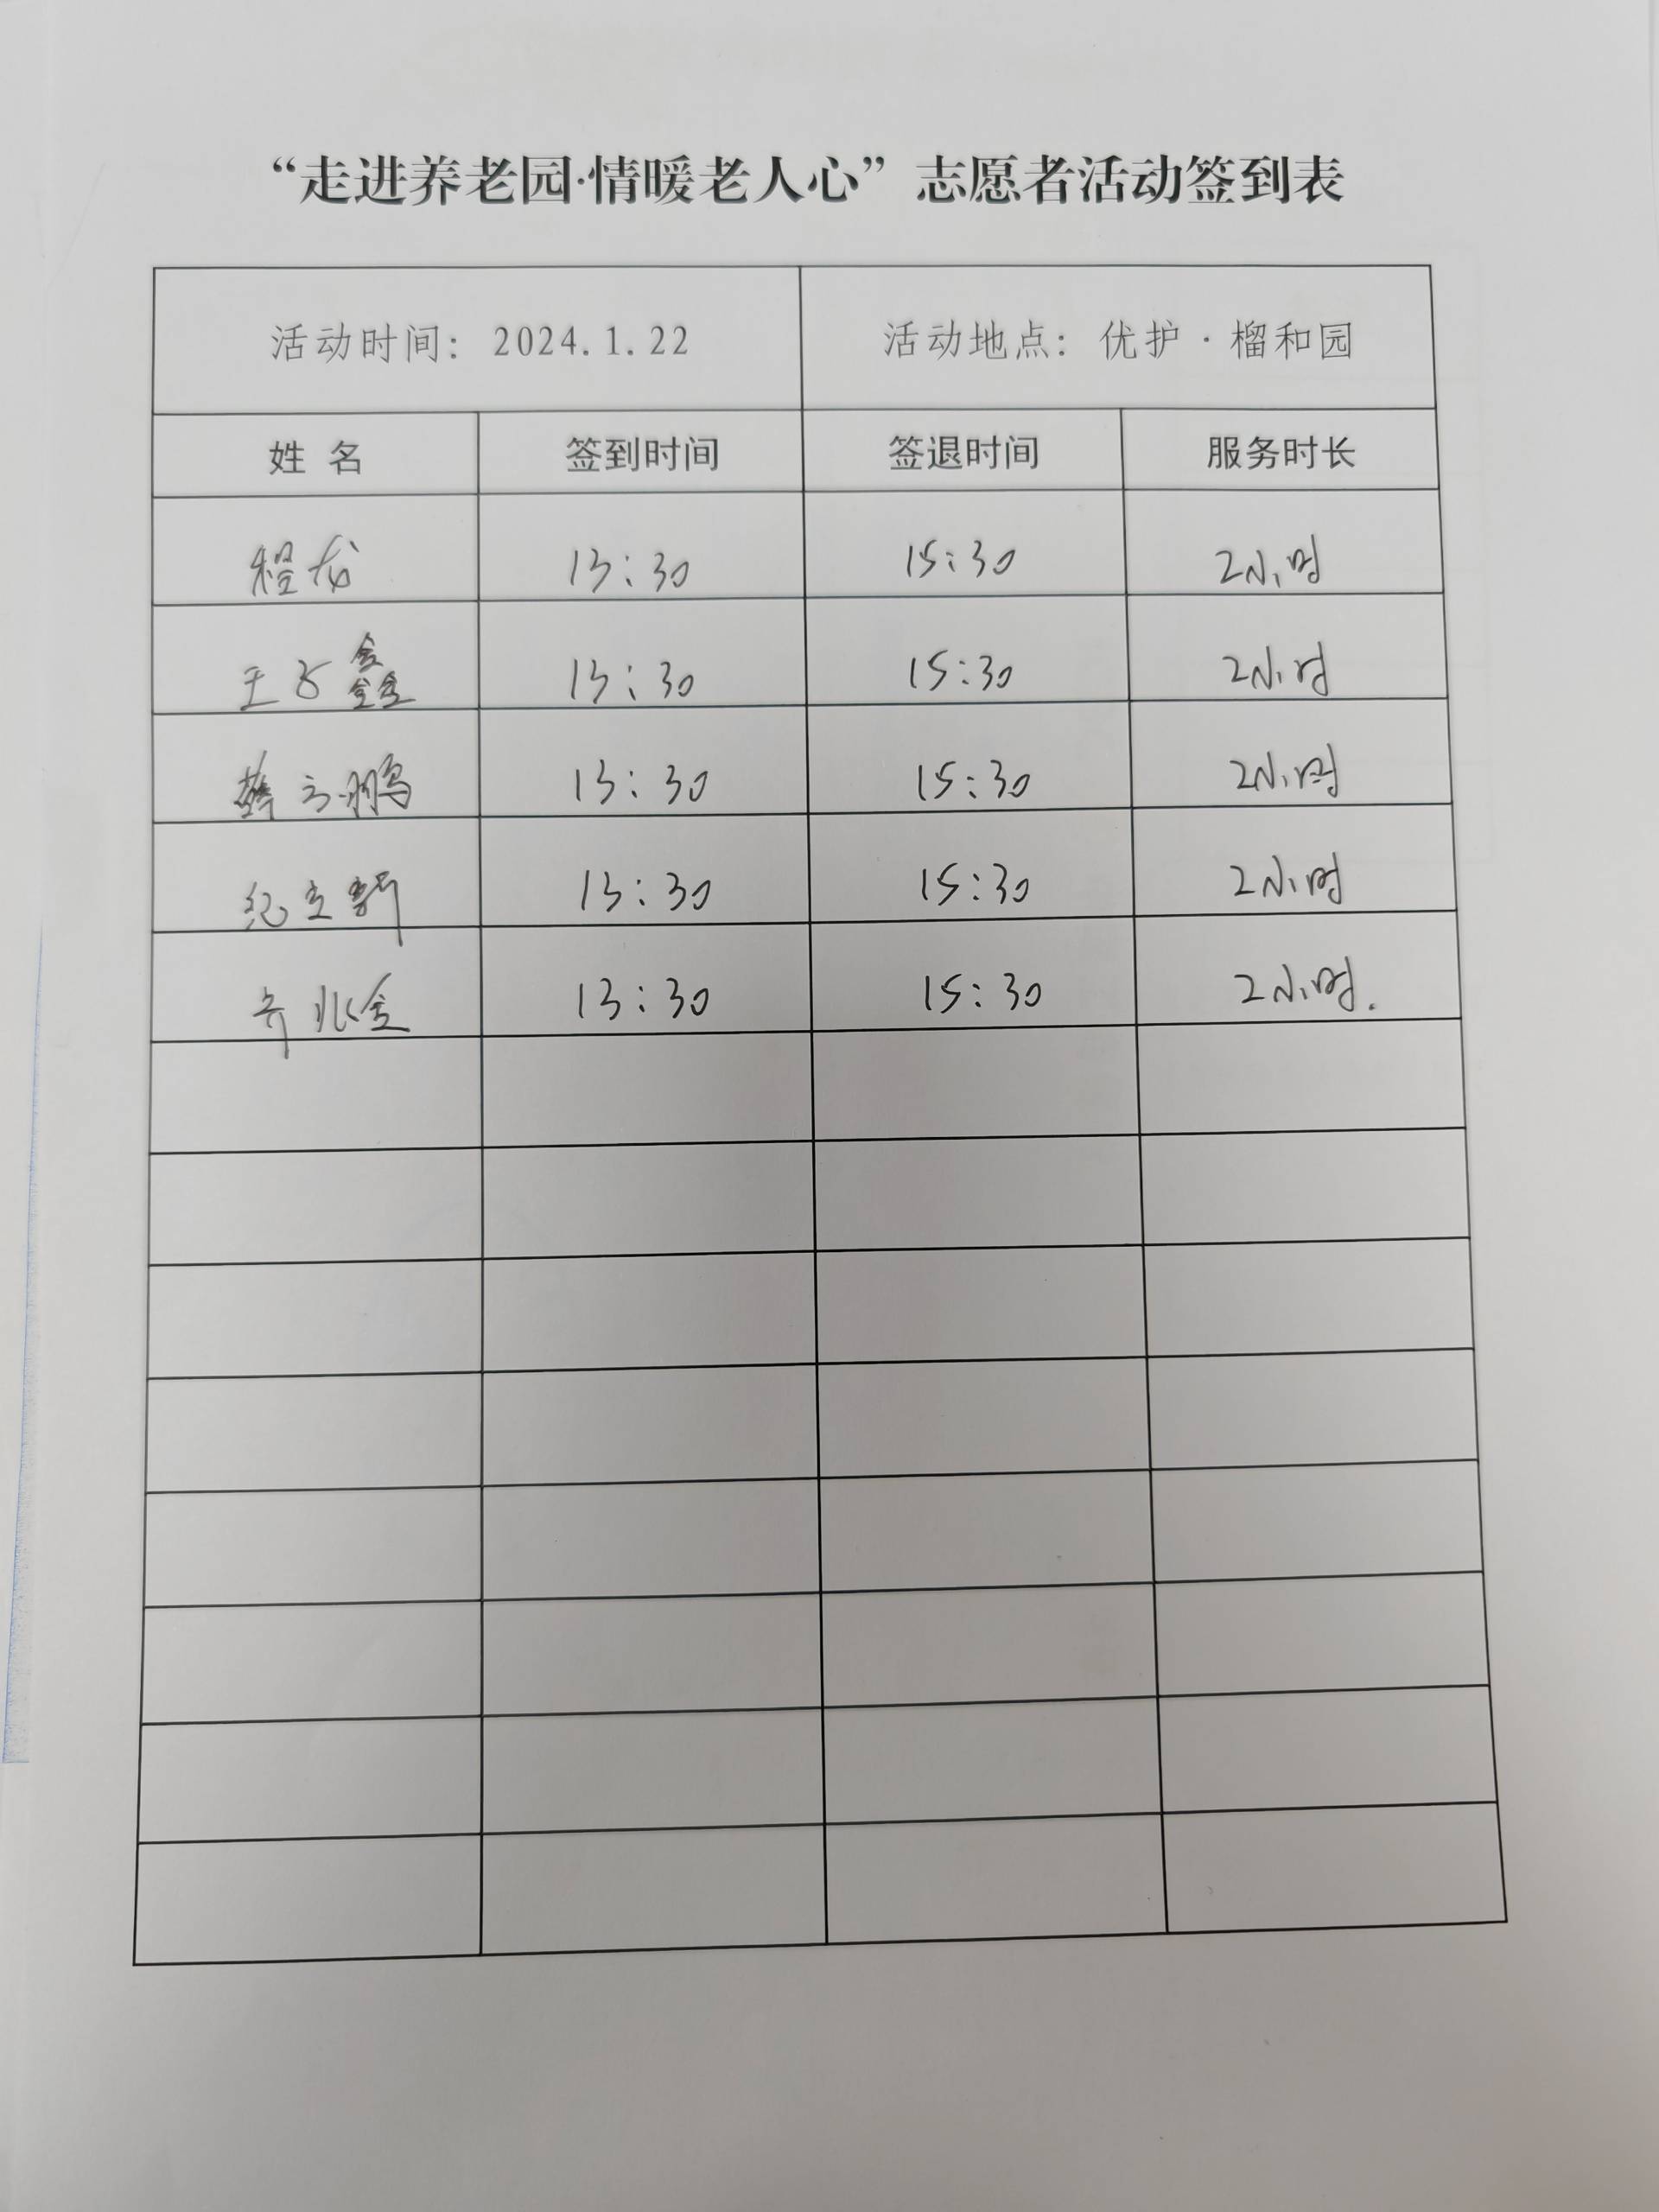 “走进养老园·情暖老人心”志愿者活动签到表
活动时间：2024.1.22 活动地点：优护·榴和园
姓 名 签到时间 签退时间 服务时长
程龙 13:30 15:30 2小时
王子鑫 13:30 15:30 2小时
薛云鹏 13:30 15:30 2小时
纪立新 13:30 15:30 2小时
齐兆金 13:30 15:30 2小时.